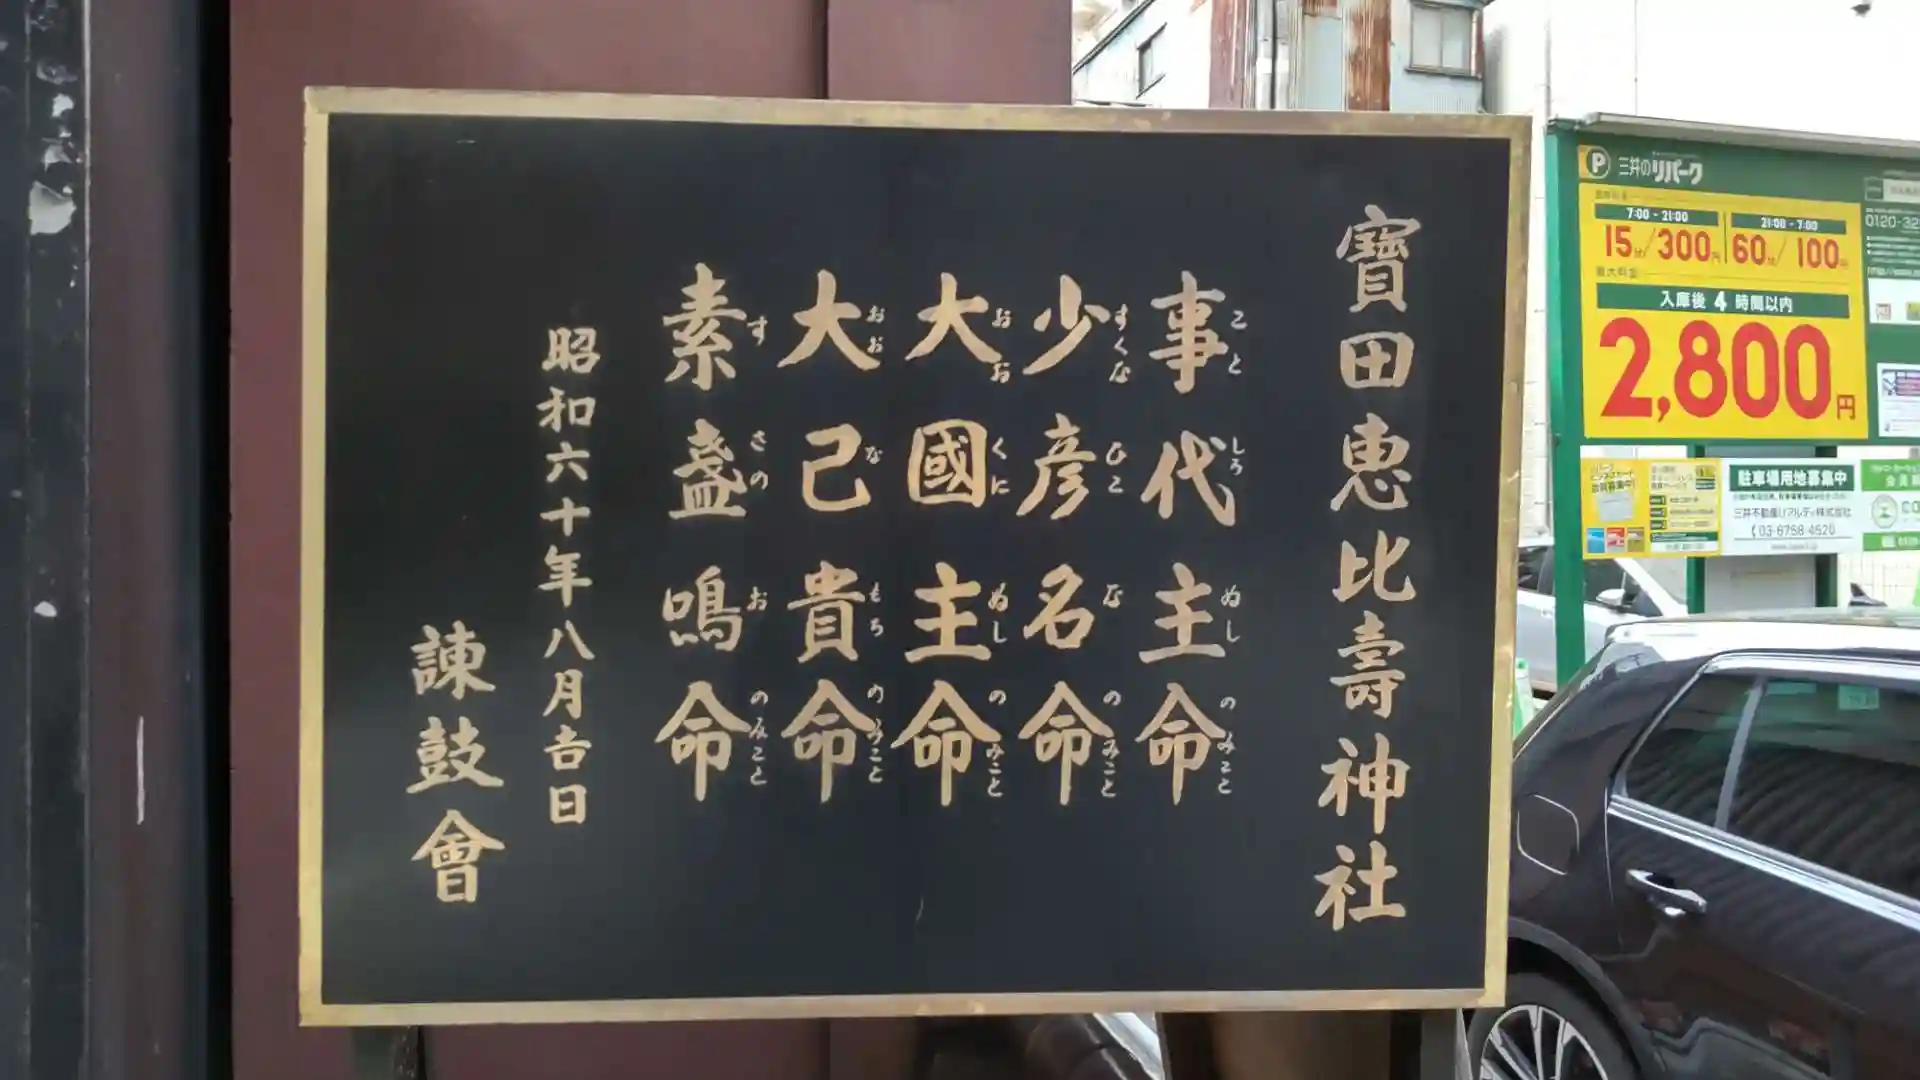 寶田恵比壽神社
事代主命
ことしろぬしのみこと
少彦名命
すくなひこなのみこと
大國主命
おおくにぬしのみこと
大己貴命
おおなもちのみこと
素盞鳴命
すさのおのみこと
昭和六十年八月吉日
諫鼓會
P 三井のリパーク
7:00 - 21:00
15分/300円
21:00 - 7:00
60分/100円
最大料金
入庫後 4 時間以内
2,800円
0120-32
駐車場用地募集中
三井不動産リアルティ株式会社
03-6758-4520